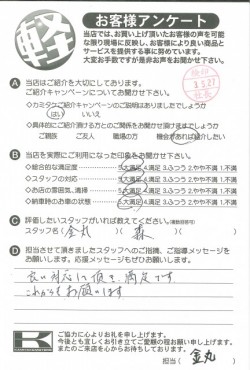 軽
お客様アンケート
当店では、お買い上げ頂いたお客様の声を可能
な限り現場に反映し、お客様により良い商品と
サービスを提供する事に努めています。
大変お手数ですが是非お声をお聞かせ下さい。
A 当店はご紹介を大切にしております。
ご紹介キャンペーンについてお聞かせ下さい。
◇カミタケご紹介キャンペーンのご説明はありましたでしょうか
はい いいえ
◇具体的にご紹介頂ける方とのご関係をお聞かせ頂けますでしょうか
ご親族 ご友人 職場の方 機会があれば紹介したい
B 当店を実際にご利用になった印象をお聞かせ下さい。
◇総合的な満足度 5.大満足 4.満足 3.ふつう 2.やや不満 1.不満
◇スタッフの対応 5.大満足 4.満足 3.ふつう 2.やや不満 1.不満
◇お店の雰囲気、清掃 5.大満足 4.満足 3.ふつう 2.やや不満 1.不満
◇納車時のお車の状態 5.大満足 4.満足 3.ふつう 2.やや不満 1.不満
C 評価したいスタッフがいれば教えてください。(複数回答可)
スタッフ名( 金丸 )( 森 )
D 担当させて頂きましたスタッフへのご指摘、ご指導メッセージを
お願いします。応援メッセージもぜひお聞かせ下さい。
良い対応して頂き満足です
これからもお願いします
K
ご協力に心よりお礼を申し上げます。
今後とも宜しくお引き立てご愛顧の程お願い申し上げます。
またのご来店を心からお待ちしております。
担当( 金丸 )